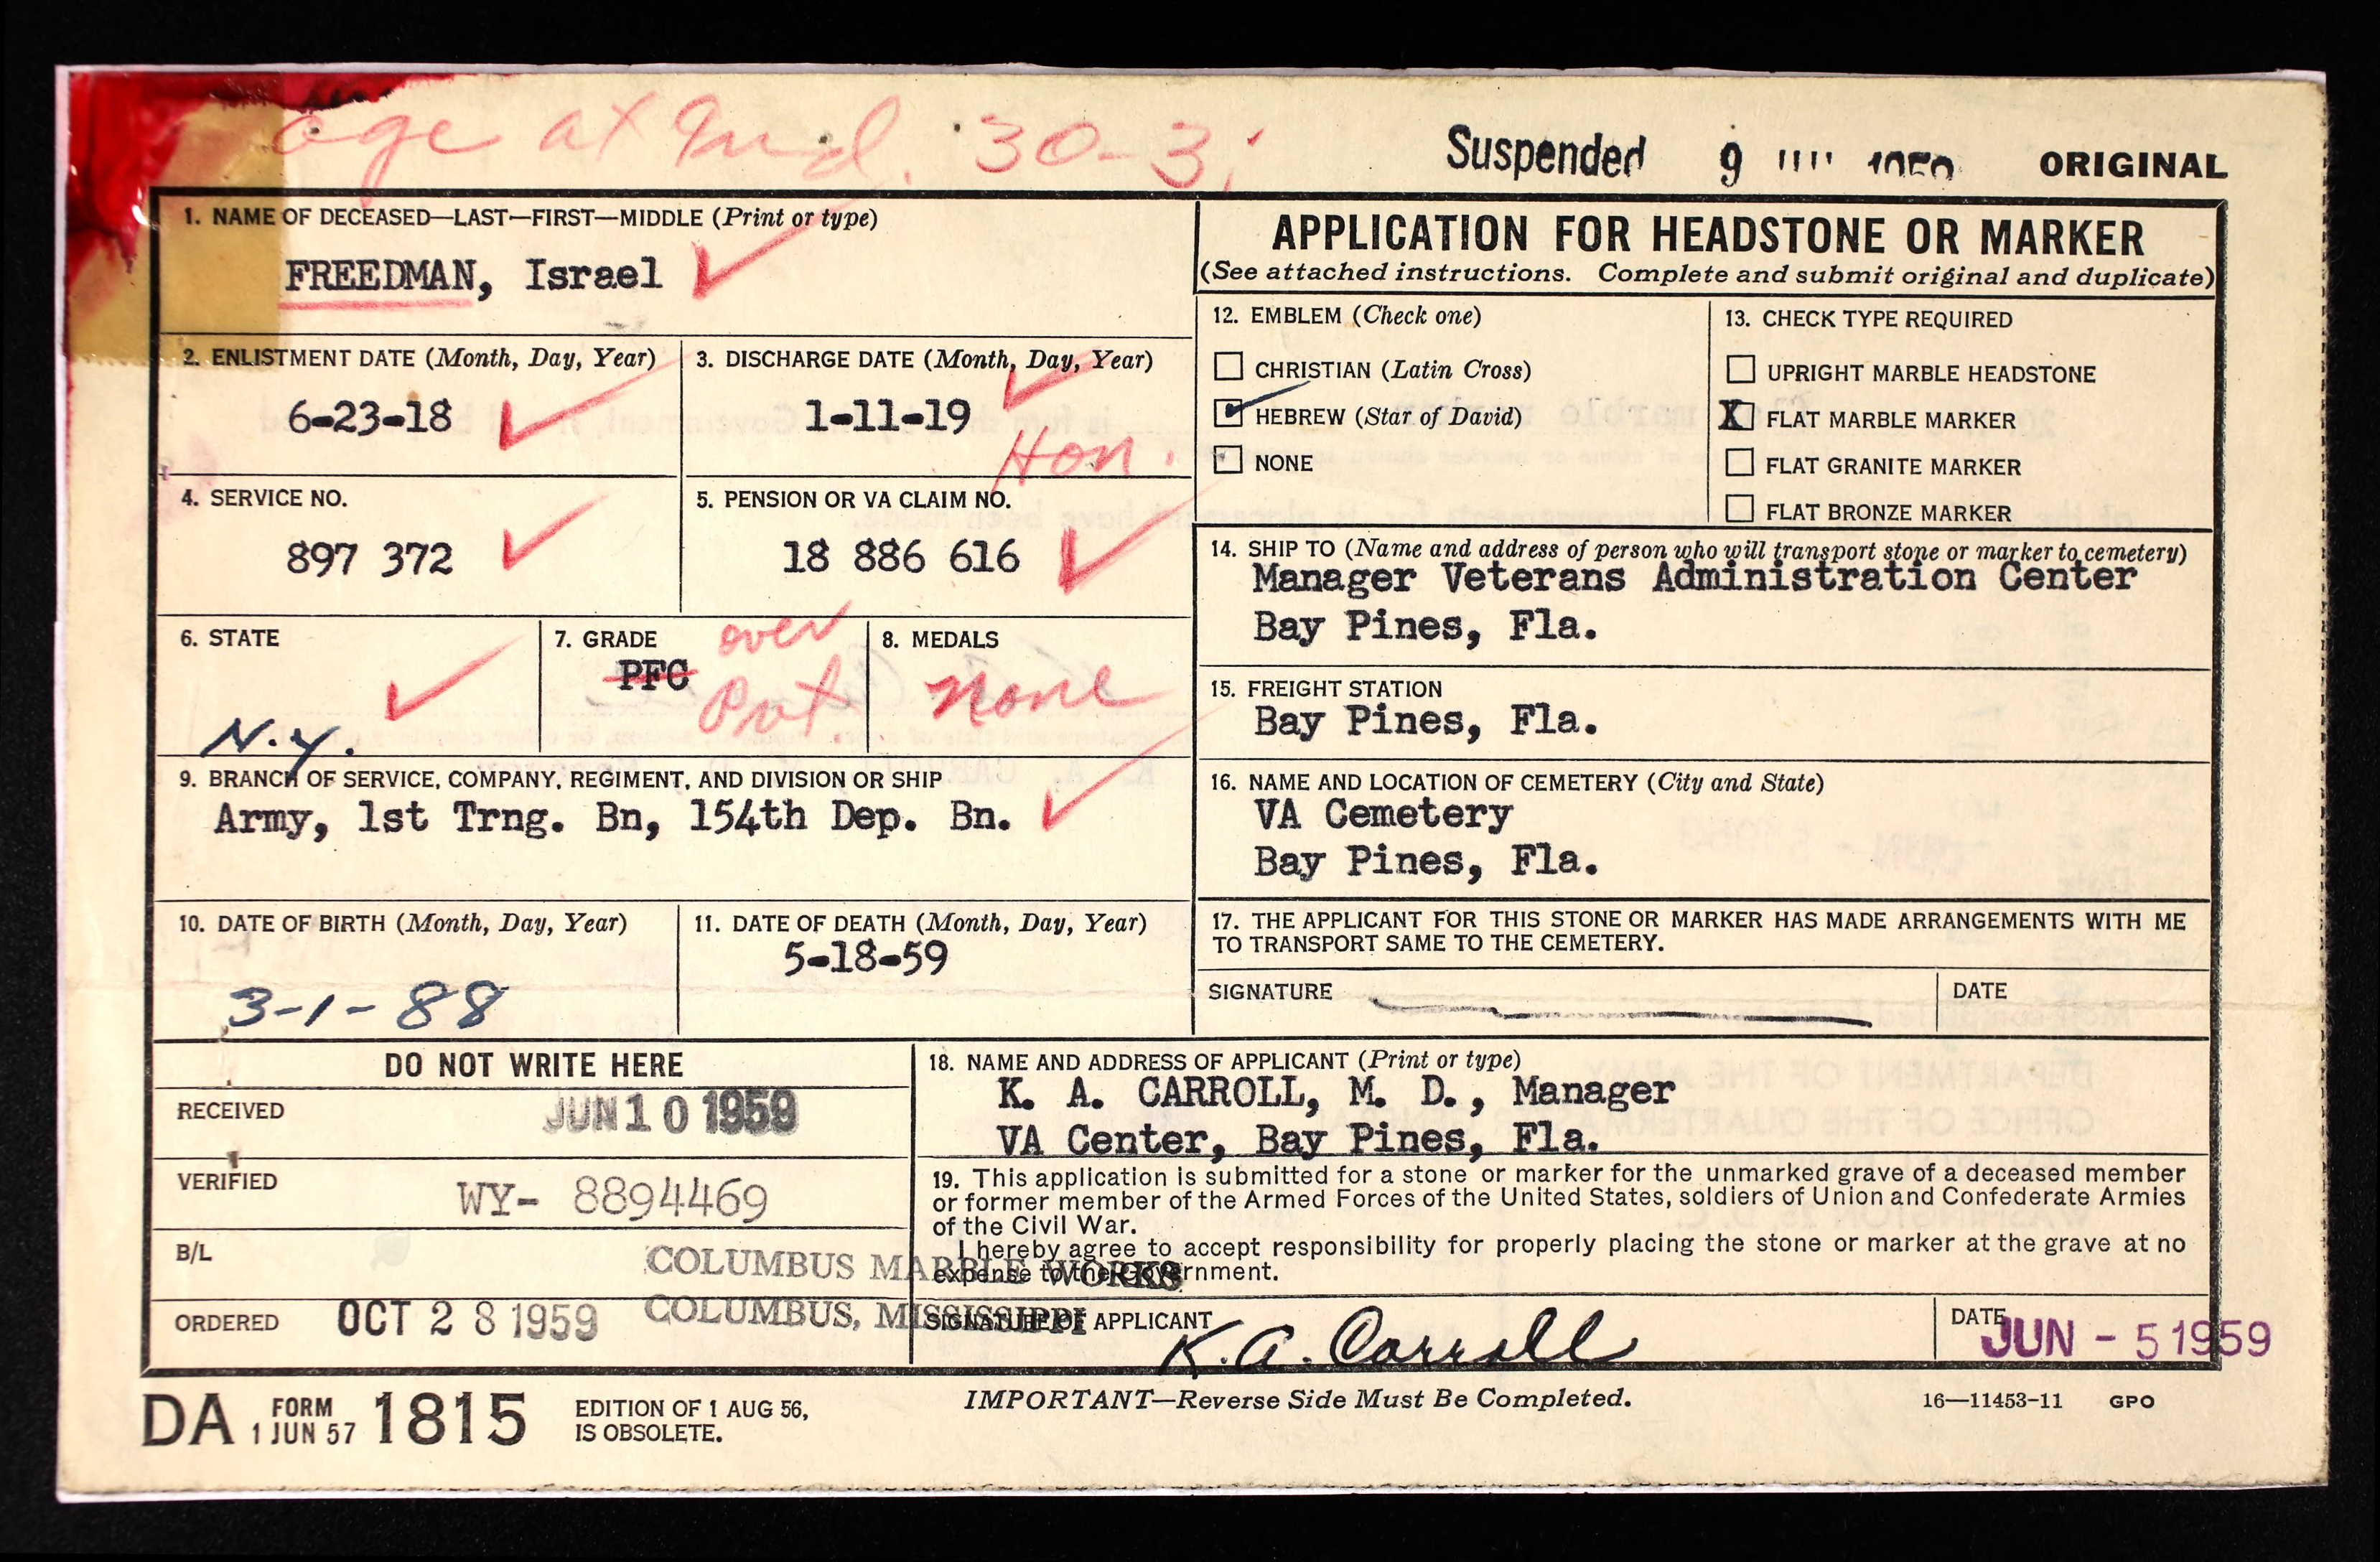 age at Ind. 30-3
Suspended 9
ORIGINAL
1. NAME OF DECEASED—LAST—FIRST—MIDDLE (Print or type)
FREEDMAN, Israel
2. ENLISTMENT DATE (Month, Day, Year)
6-23-18
3. DISCHARGE DATE (Month, Day, Year)
1-11-19
Hon.
4. SERVICE NO.
897 372
5. PENSION OR VA CLAIM NO.
18 886 616
6. STATE
N.Y.
7. GRADE
PFC
over
Pvt
8. MEDALS
none
9. BRANCH OF SERVICE, COMPANY, REGIMENT, AND DIVISION OR SHIP
Army, 1st Trng. Bn, 154th Dep. Bn.
10. DATE OF BIRTH (Month, Day, Year)
3-1-88
11. DATE OF DEATH (Month, Day, Year)
5-18-59
APPLICATION FOR HEADSTONE OR MARKER
(See attached instructions. Complete and submit original and duplicate)
12. EMBLEM (Check one)
CHRISTIAN (Latin Cross)
HEBREW (Star of David)
NONE
13. CHECK TYPE REQUIRED
UPRIGHT MARBLE HEADSTONE
X FLAT MARBLE MARKER
FLAT GRANITE MARKER
FLAT BRONZE MARKER
14. SHIP TO (Name and address of person who will transport stone or marker to cemetery)
Manager Veterans Administration Center
Bay Pines, Fla.
15. FREIGHT STATION
Bay Pines, Fla.
16. NAME AND LOCATION OF CEMETERY (City and State)
VA Cemetery
Bay Pines, Fla.
17. THE APPLICANT FOR THIS STONE OR MARKER HAS MADE ARRANGEMENTS WITH ME
TO TRANSPORT SAME TO THE CEMETERY.
SIGNATURE
DATE
DO NOT WRITE HERE
RECEIVED JUN 10 1959
VERIFIED WY- 8894469
B/L COLUMBUS MARBLE WORKS
ORDERED OCT 28 1959 COLUMBUS, MISSISSIPPI
18. NAME AND ADDRESS OF APPLICANT (Print or type)
K. A. CARROLL, M. D., Manager
VA Center, Bay Pines, Fla.
19. This application is submitted for a stone or marker for the unmarked grave of a deceased member
or former member of the Armed Forces of the United States, soldiers of Union and Confederate Armies
of the Civil War.
I hereby agree to accept responsibility for properly placing the stone or marker at the grave at no
expense to the Government.
SIGNATURE OF APPLICANT
K. A. Carroll
DATE
JUN - 5 1959
DA FORM 1 JUN 57 1815
EDITION OF 1 AUG 56,
IS OBSOLETE.
IMPORTANT—Reverse Side Must Be Completed.
16—11453-11 GPO